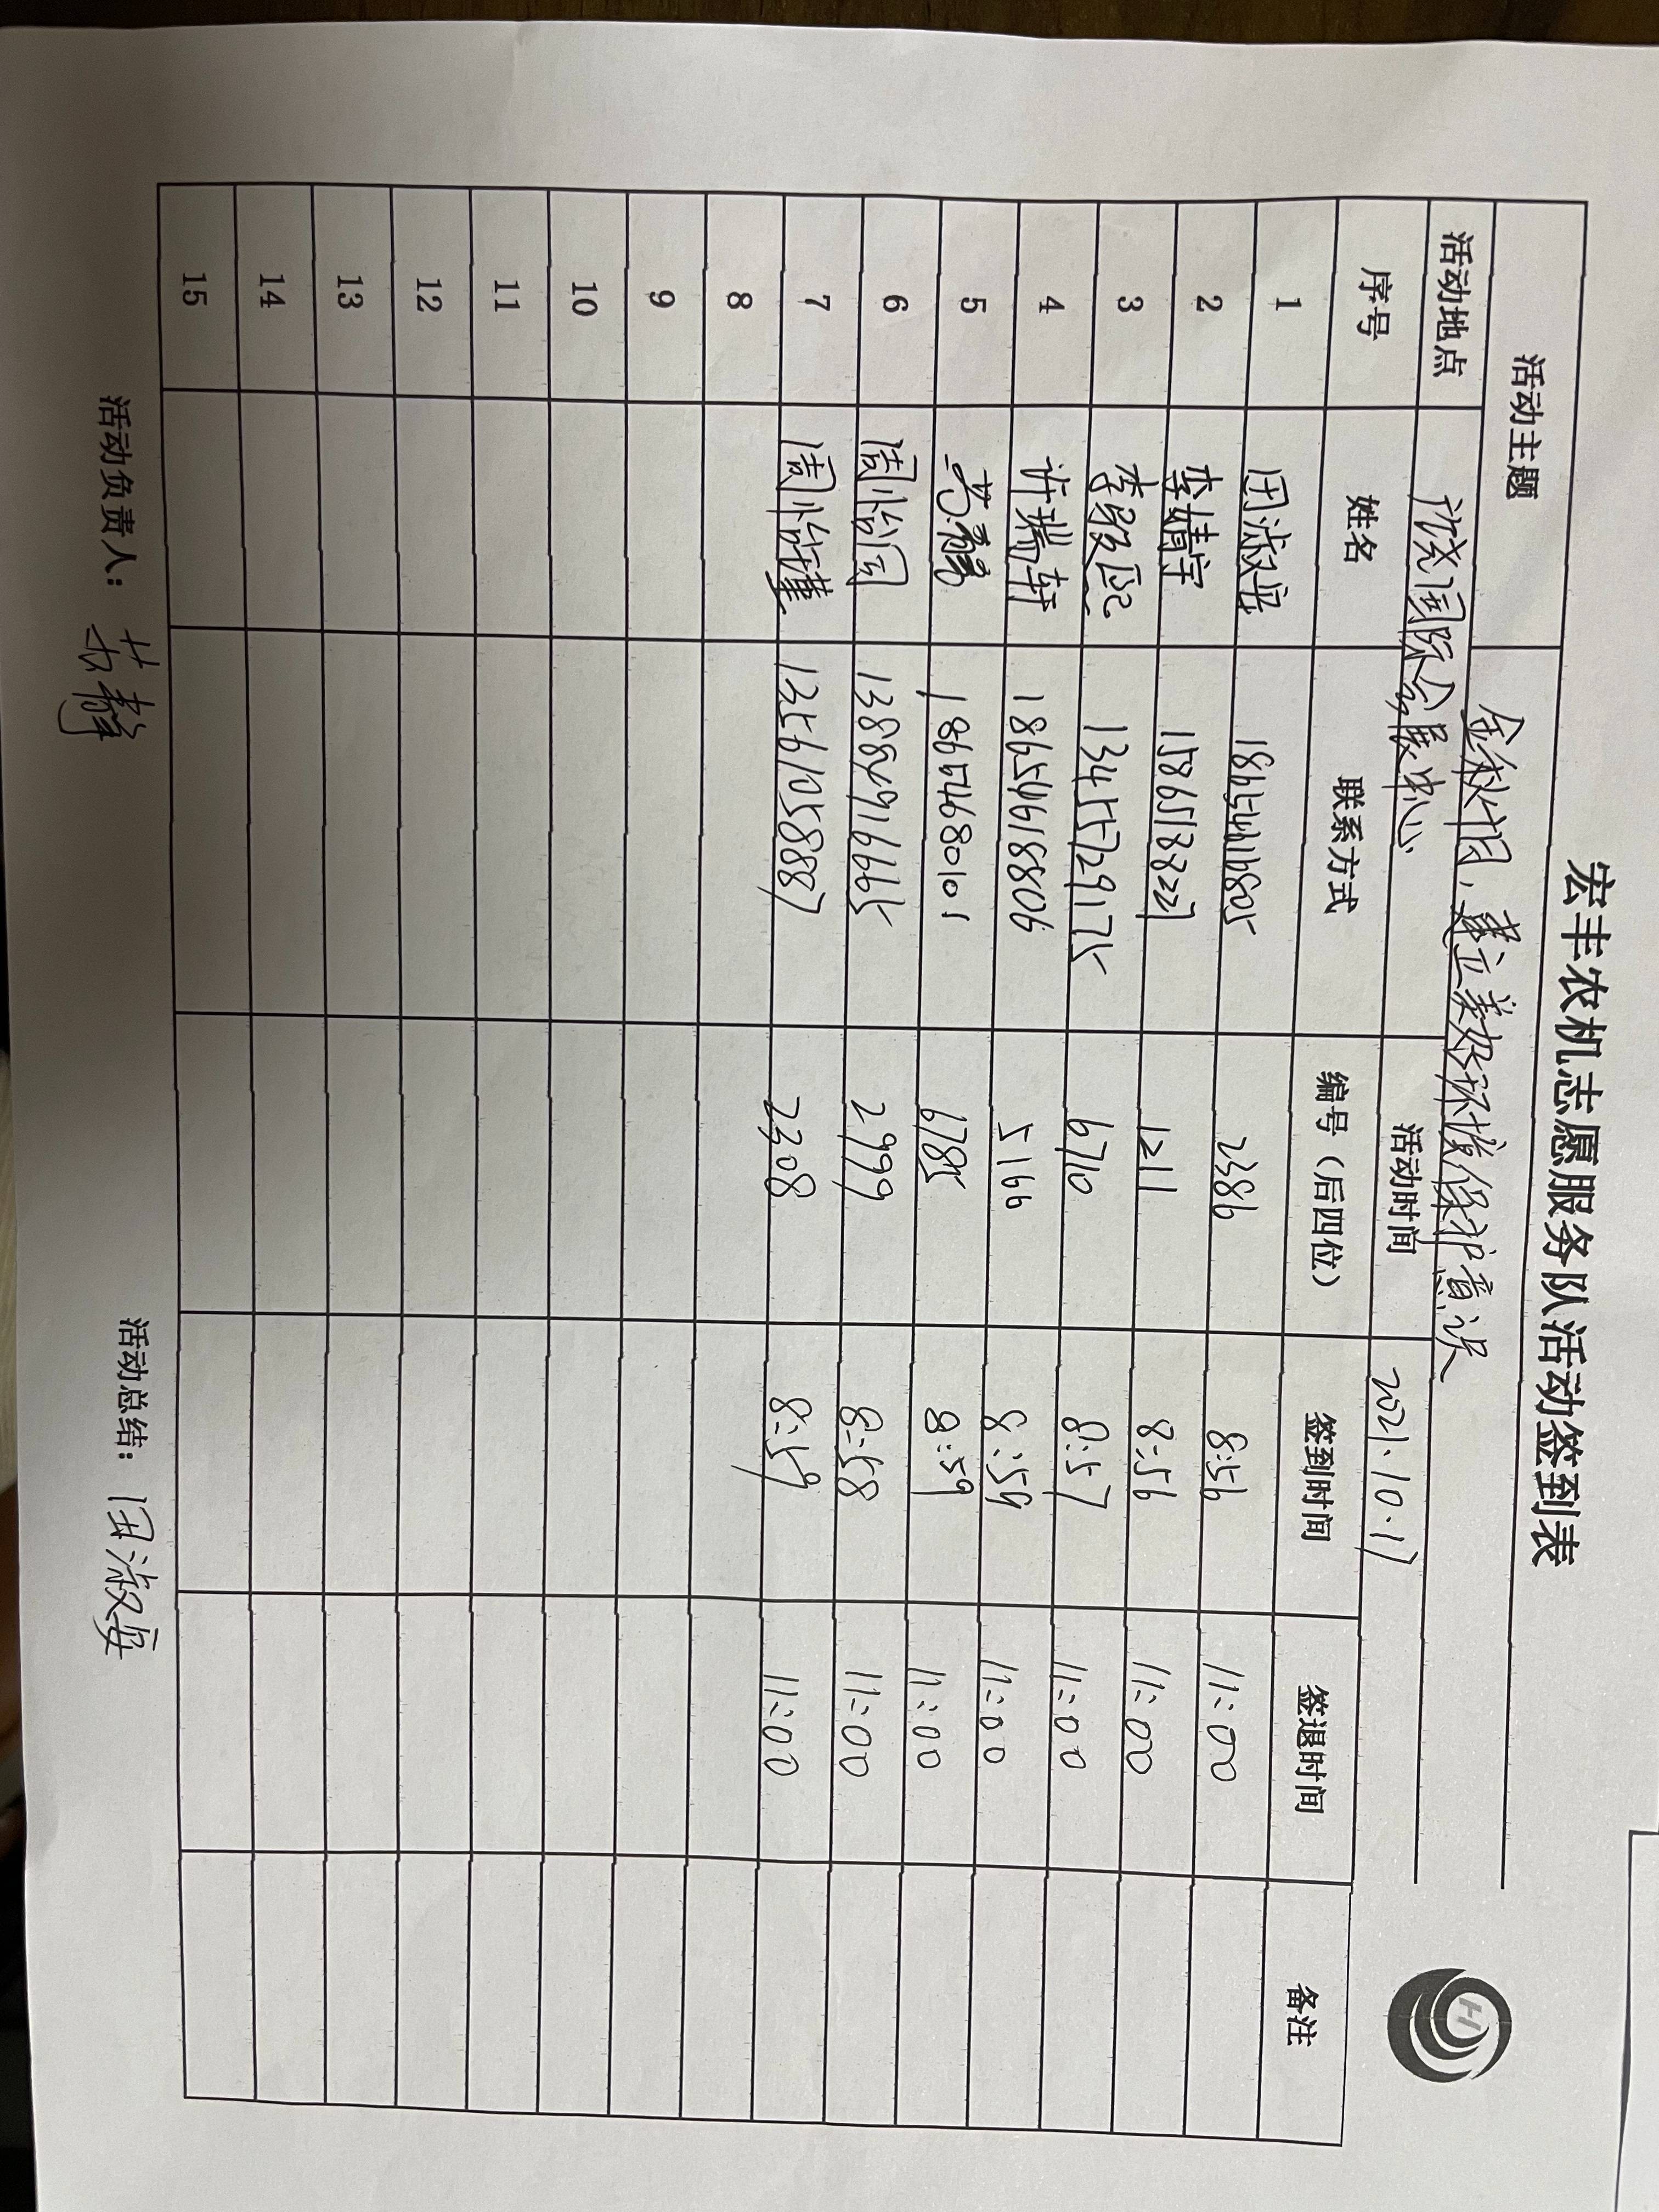 宏丰农机志愿服务队活动签到表
H
活动主题 金秋十月,建立美好环境保护意识
活动地点 国际会展中心 活动时间 2021.10.17
序号 姓名 联系方式 编号(后四位) 签到时间 签退时间 备注
1 田淑安 18654416805 2386 8:56 11:00
2 李婧宇 15865188221 1211 8:56 11:00
3 李 13455729175 6710 8:57 11:00
4 许瑞轩 18659618806 5166 8:59 11:00
5 18674680101 6785 8:59 11:00
6 周怡同 13882916665 2999 8:58 11:00
7 周怡瑾 13561058887 2308 8:59 11:00
8
9
10
11
12
13
14
15
活动负责人: 苏静 活动总结: 田淑安